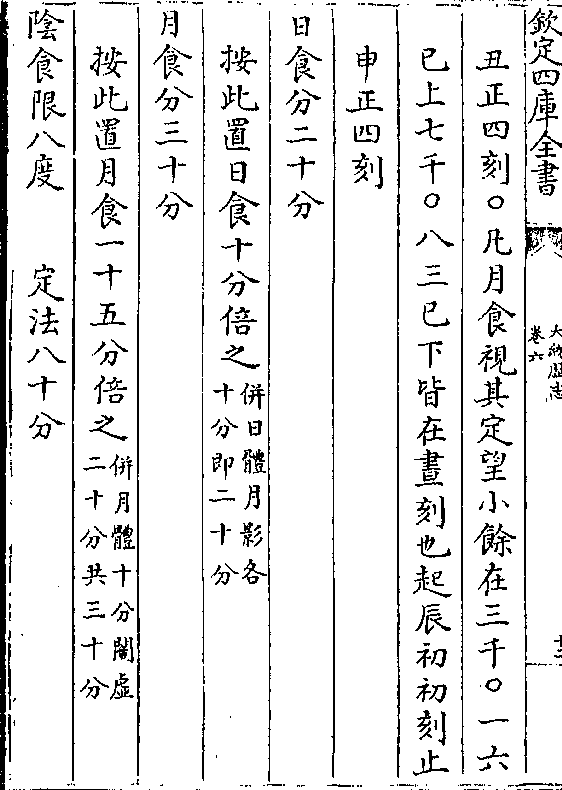 欽定四庫全書
大統厯志
卷六
丑正四刻○凡月食視其定望小餘在三千○一六
已上七千○八三已下皆在晝刻也起辰初初刻止
申正四刻
日食分二十分
按此置日食十分倍之併日體月影各十分即二十分
月食分三十分
按此置月食一十五分倍之併月體十分闇虛二十分共三十分
陰食限八度　定法八十分